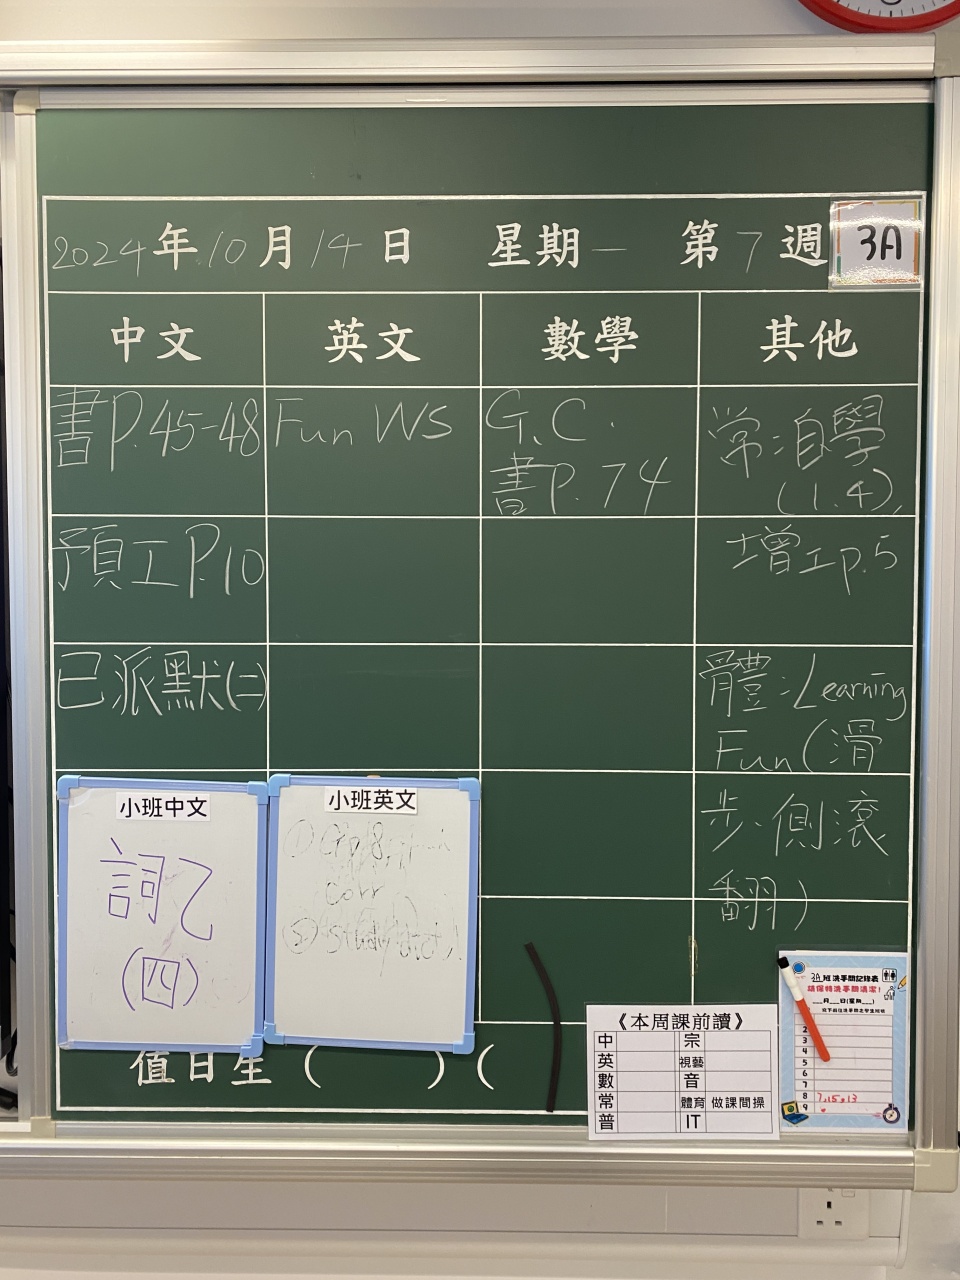 2024年10月14日 星期一 第7週 3A
中文 英文 數學 其他
書P.45-48
Fun WS
G.C.
書P.74
常:自學
(1.4),
預工P.10
增工p.5
已派默(二)
體:Learning
Fun(滑
步、側滾
翻)
小班中文
詞乙
(四)
小班英文
①
corr
② Study dict
值日生 ( ) (
《本周課前讀》
中 宗
英 視藝
數 音
常 體育 做課間操
普 IT
3A班洗手間記錄表
請保持洗手間清潔!
月 日(星期 )
2
3
4
5
6
7
8 7,15,13
9